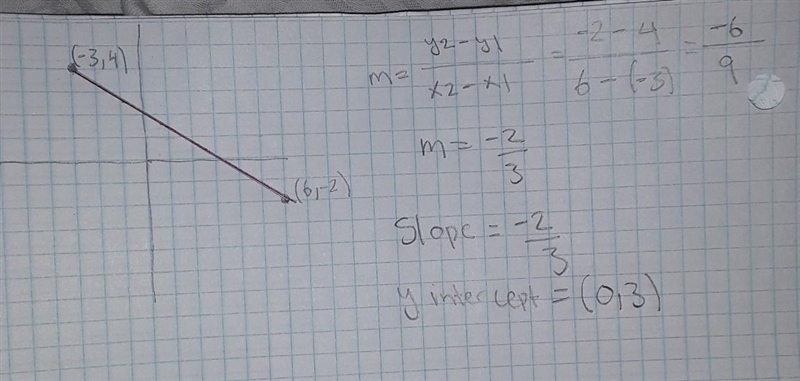 (-3,4)
(6,-2)
m= y2-y1 / x2-x1 = -2-4 / 6-(-3) = -6 / 9
m= -2 / 3
Slope = -2 / 3
y intercept = (0,3)